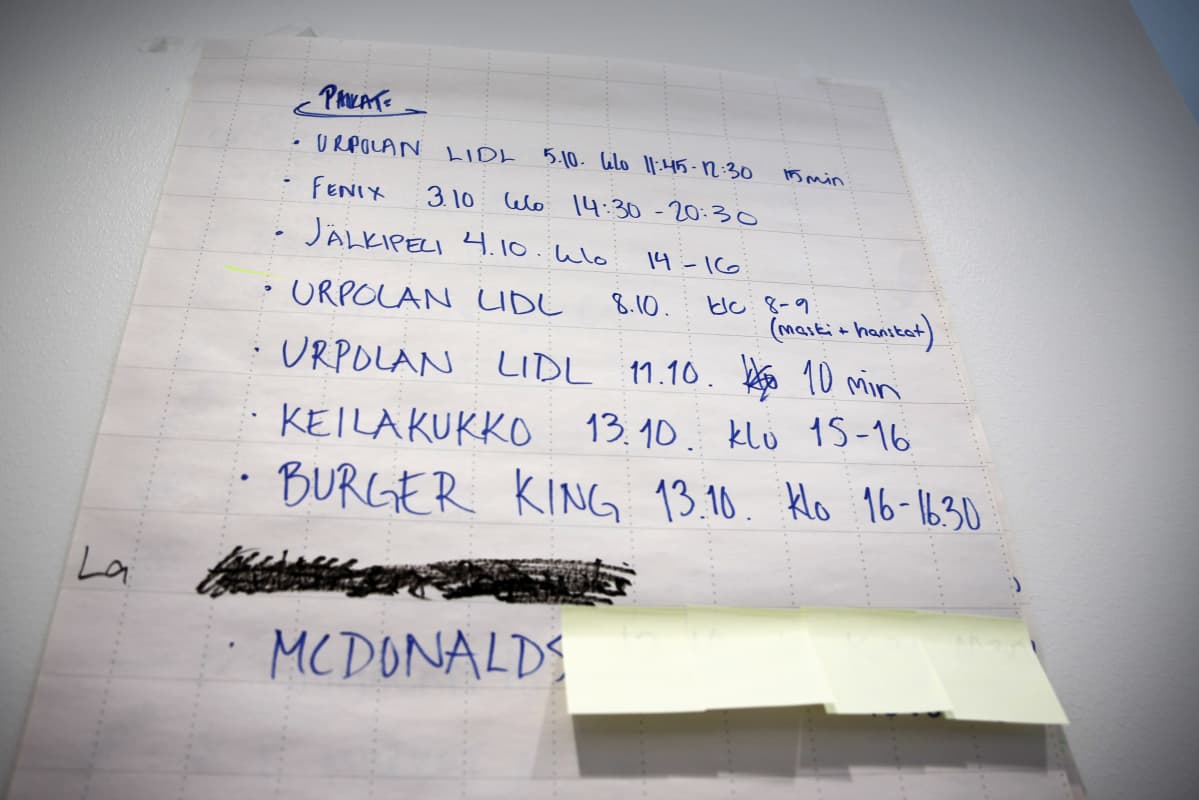 PAIKAT:
• URPOLAN LIDL 5.10. klo 11:45-12:30 15 min
• FENIX 3.10 klo 14:30-20:30
• JÄLKIPELI 4.10. klo 14-16
• URPOLAN LIDL 8.10. klo 8-9
(maski + hanskat)
• URPOLAN LIDL 11.10. 10 min
• KEILAKUKKO 13.10. klo 15-16
• BURGER KING 13.10. klo 16-16.30
La
• MCDONALDS